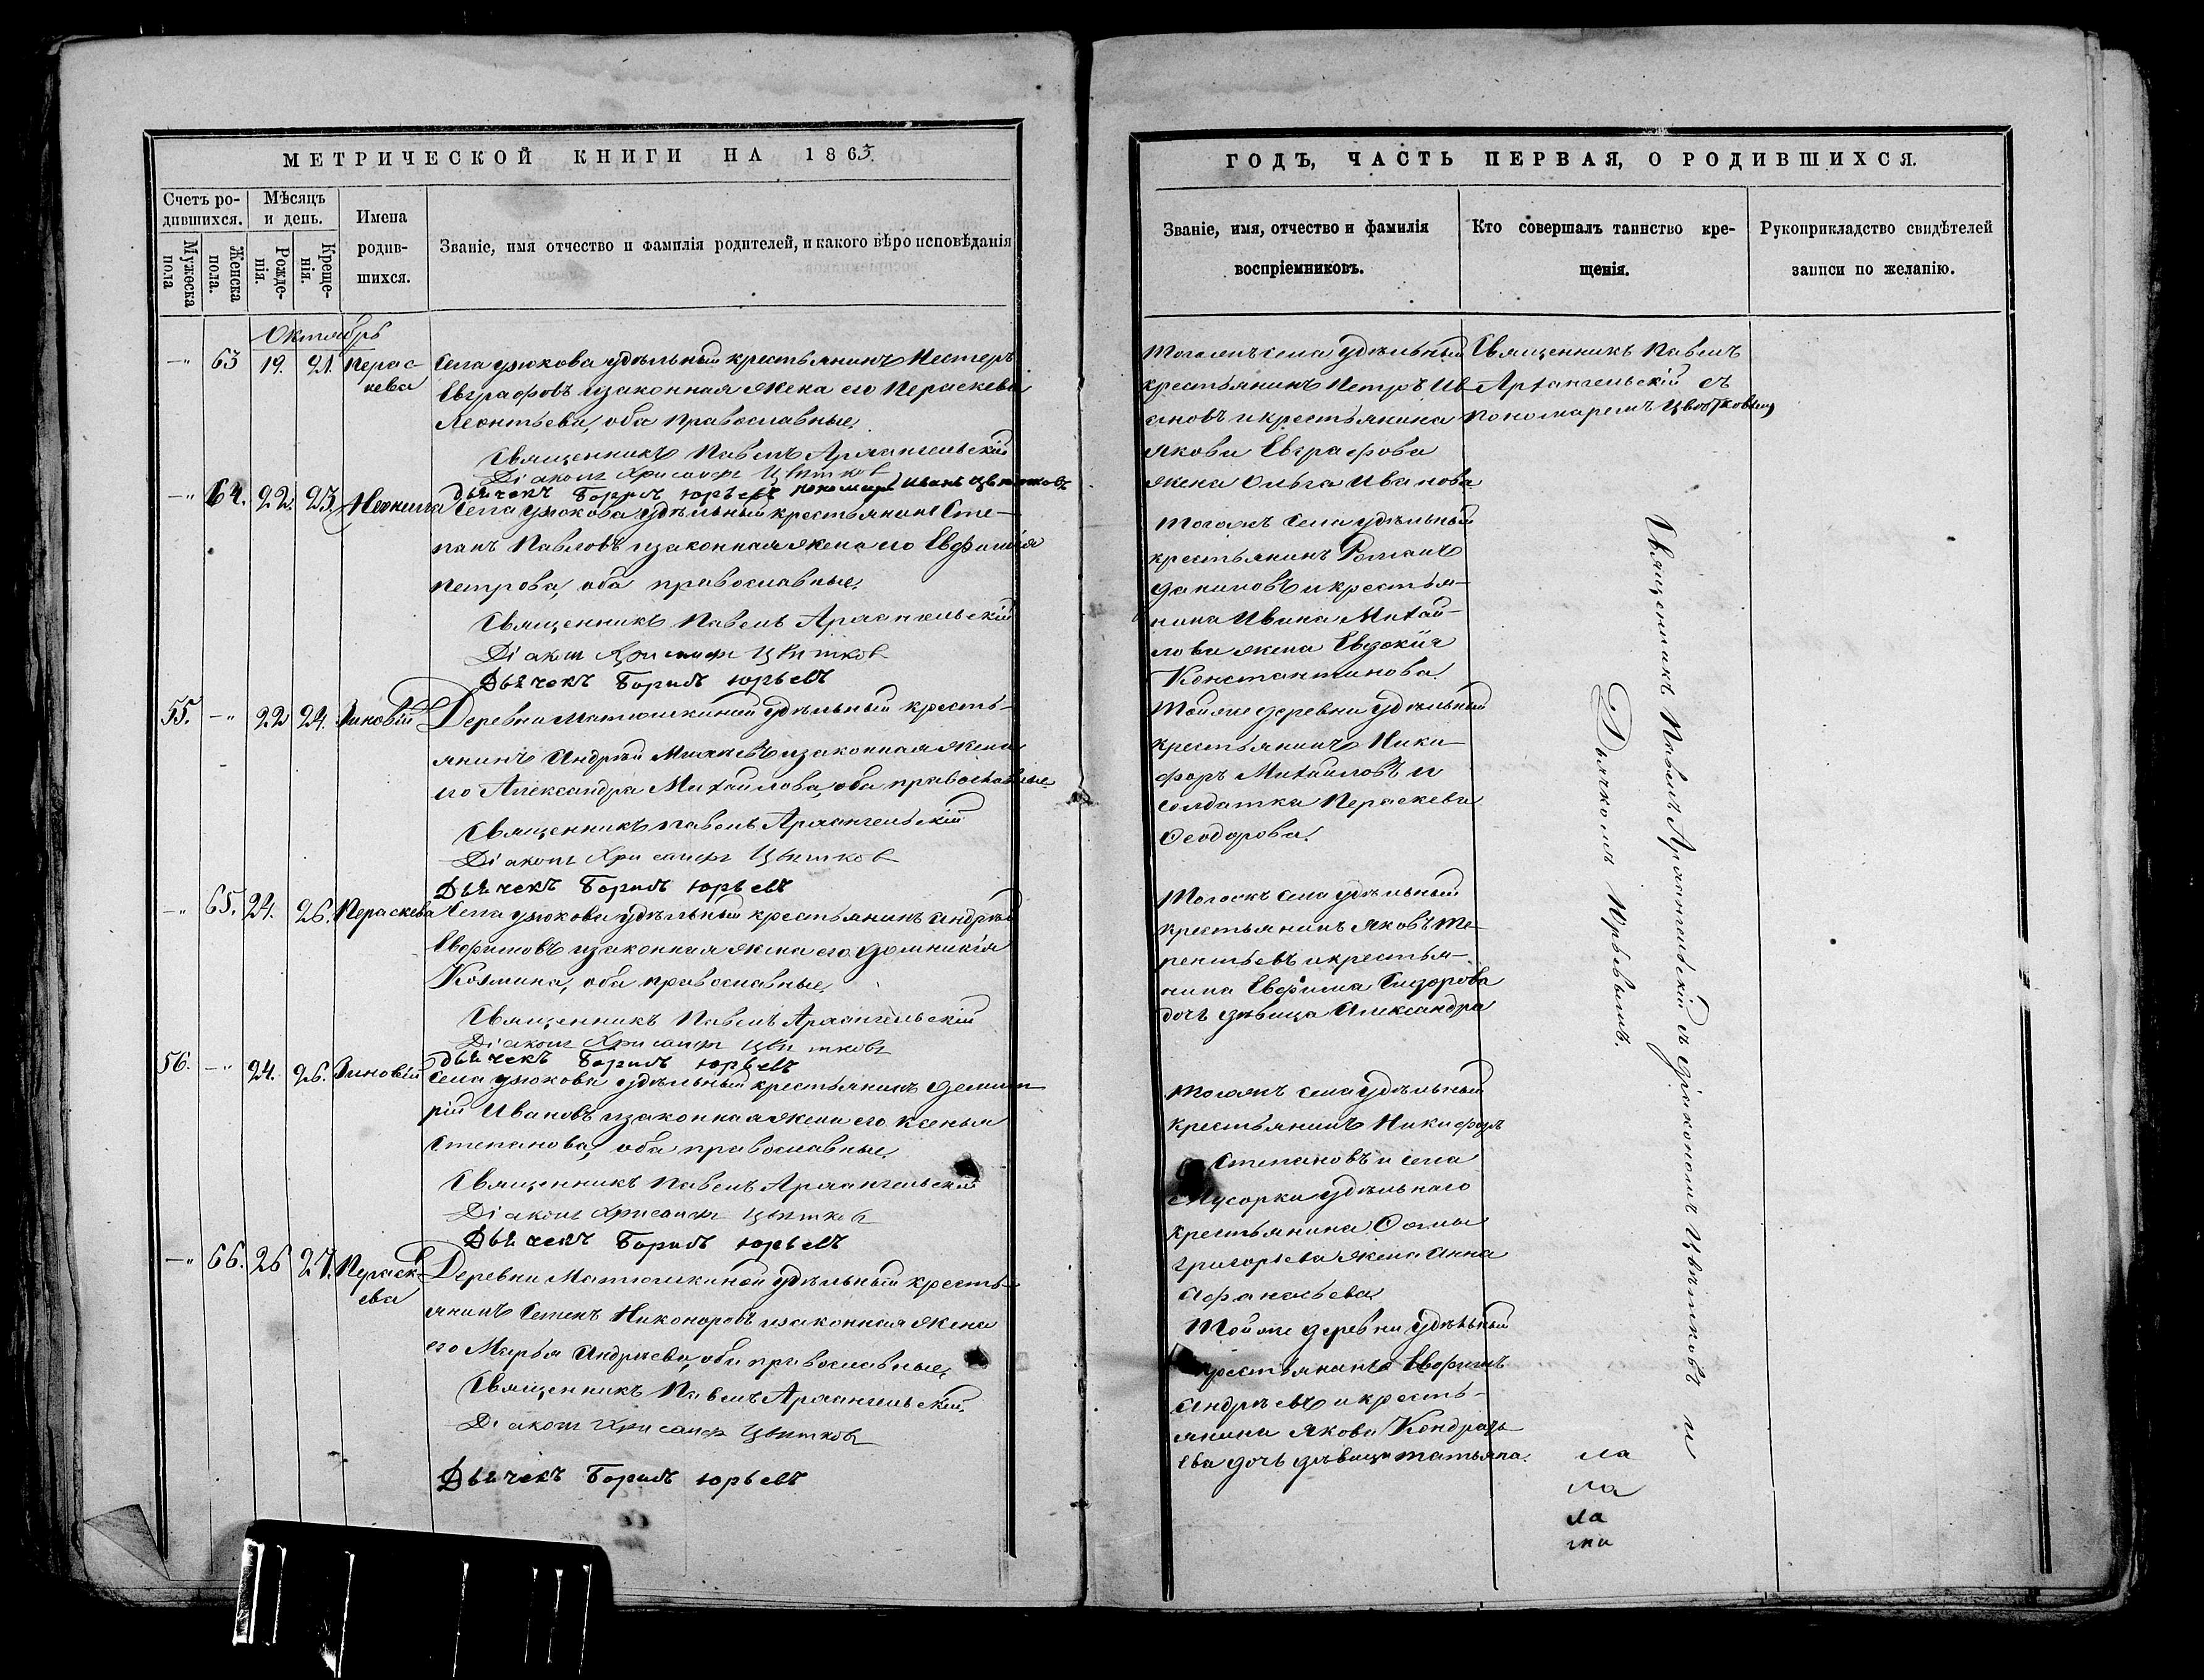 МЕТРИЧЕСКОЙ КНИГИ НА 1865.
Счетъ родившихся.
Мѣсяцъ и день.
Имена родившихся.
Званіе, имя отчество и фамилія родителей, и какого вѣроисповѣданія
Мужеска пола
Женска пола.
Рожденія.
Крещенія.
Октябрь
—" 63 19. 21. Перас-
кева
Села Узюкова удѣльный крестьянинъ Нестеръ
Евграфовъ и законная жена его Пераскева
Леонтьева, оба православные.
Священникъ Павелъ Архангельскій
Діаконъ Хрисанфъ Цвѣтковъ
Дьячекъ Борисъ Юрьевъ пономарь Иванъ Цвѣтковъ
—" 64. 22. 23. Неонила
Села Узюкова удѣльный крестьянинъ Сте-
панъ Павловъ и законная жена его Евфимія
Петрова, оба православные.
Священникъ Павелъ Архангельскій
Діаконъ Хрисанфъ Цвѣтковъ
Дьячекъ Борисъ Юрьевъ
55. —" 22 24. Зиновій
Деревни Матюшкиной удѣльный кресть-
янинъ Андрей и законная жена
его Александра Михайлова, оба православные.
Священникъ Павелъ Архангельскій
Діаконъ Хрисанфъ Цвѣтковъ
Дьячекъ Борисъ Юрьевъ
—" 65. 24. 26. Пераскева
Села Узюкова удѣльный крестьянинъ Андрей
Евфимовъ и законная жена его Домникія
Козмина, оба православные.
Священникъ Павелъ Архангельскій
Діаконъ Хрисанфъ Цвѣтковъ
Дьячекъ Борисъ Юрьевъ
56. —" 24. 26. Зиновій
Села Узюкова удѣльный крестьянинъ Димит-
рій Ивановъ и законная жена его Ксенья
Степанова, оба православные.
Священникъ Павелъ Архангельскій
Діаконъ Хрисанфъ Цвѣтковъ
Дьячекъ Борисъ Юрьевъ
—" 66. 26 27. Пераск-
ева
Деревни Матюшкиной удѣльный кресть-
янинъ Семенъ Никоноровъ и законная жена
его Марья Андрѣева, оба православные,
Священникъ Павелъ Архангельскій.
Діаконъ Хрисанфъ Цвѣтковъ
Дьячекъ Борисъ Юрьевъ
ГОДЪ, ЧАСТЬ ПЕРВАЯ, О РОДИВШИХСЯ.
Званіе, имя, отчество и фамилія воспріемниковъ.
Кто совершалъ таинство крещенія.
Рукоприкладство свидѣтелей записи по желанію.
Тогожъ села удѣльный
крестьянинъ Петръ Ив-
ановъ и крестьянина
Якова Евграфова
жена Ольга Иванова
Священникъ Павелъ
Архангельскій съ
пономаремъ Цвѣтковымъ
Тогожъ села удѣльный
крестьянинъ Романъ
Даниловъ и крестья-
нина Ивана Михай-
лова жена Евдокія
Константинова.
Тойже деревни удѣльный
крестьянинъ Ники-
форъ Михайловъ и
солдатка Пераскева
Ѳеодорова.
Тогожъ села удѣльный
крестьянинъ Яковъ Те-
рентьевъ и крестья-
нина Евфима Сидорова
дочь дѣвица Александра
Тогожъ села удѣльный
крестьянинъ Никифоръ
Степановъ и села
Мусорки удѣльнаго
крестьянина Ѳомы
Григорьева жена Анна
Афанасьева
Тойже деревни удѣльный
крестьянинъ Евфимъ
Андрѣевъ и кресть-
янина Якова Кондрать-
ева дочь дѣвица Татьяна.
Священникъ Павелъ Архангельскій съ діакономъ Цвѣтковъ и
Дьячкомъ Юрьевымъ.
ла
ла
ла